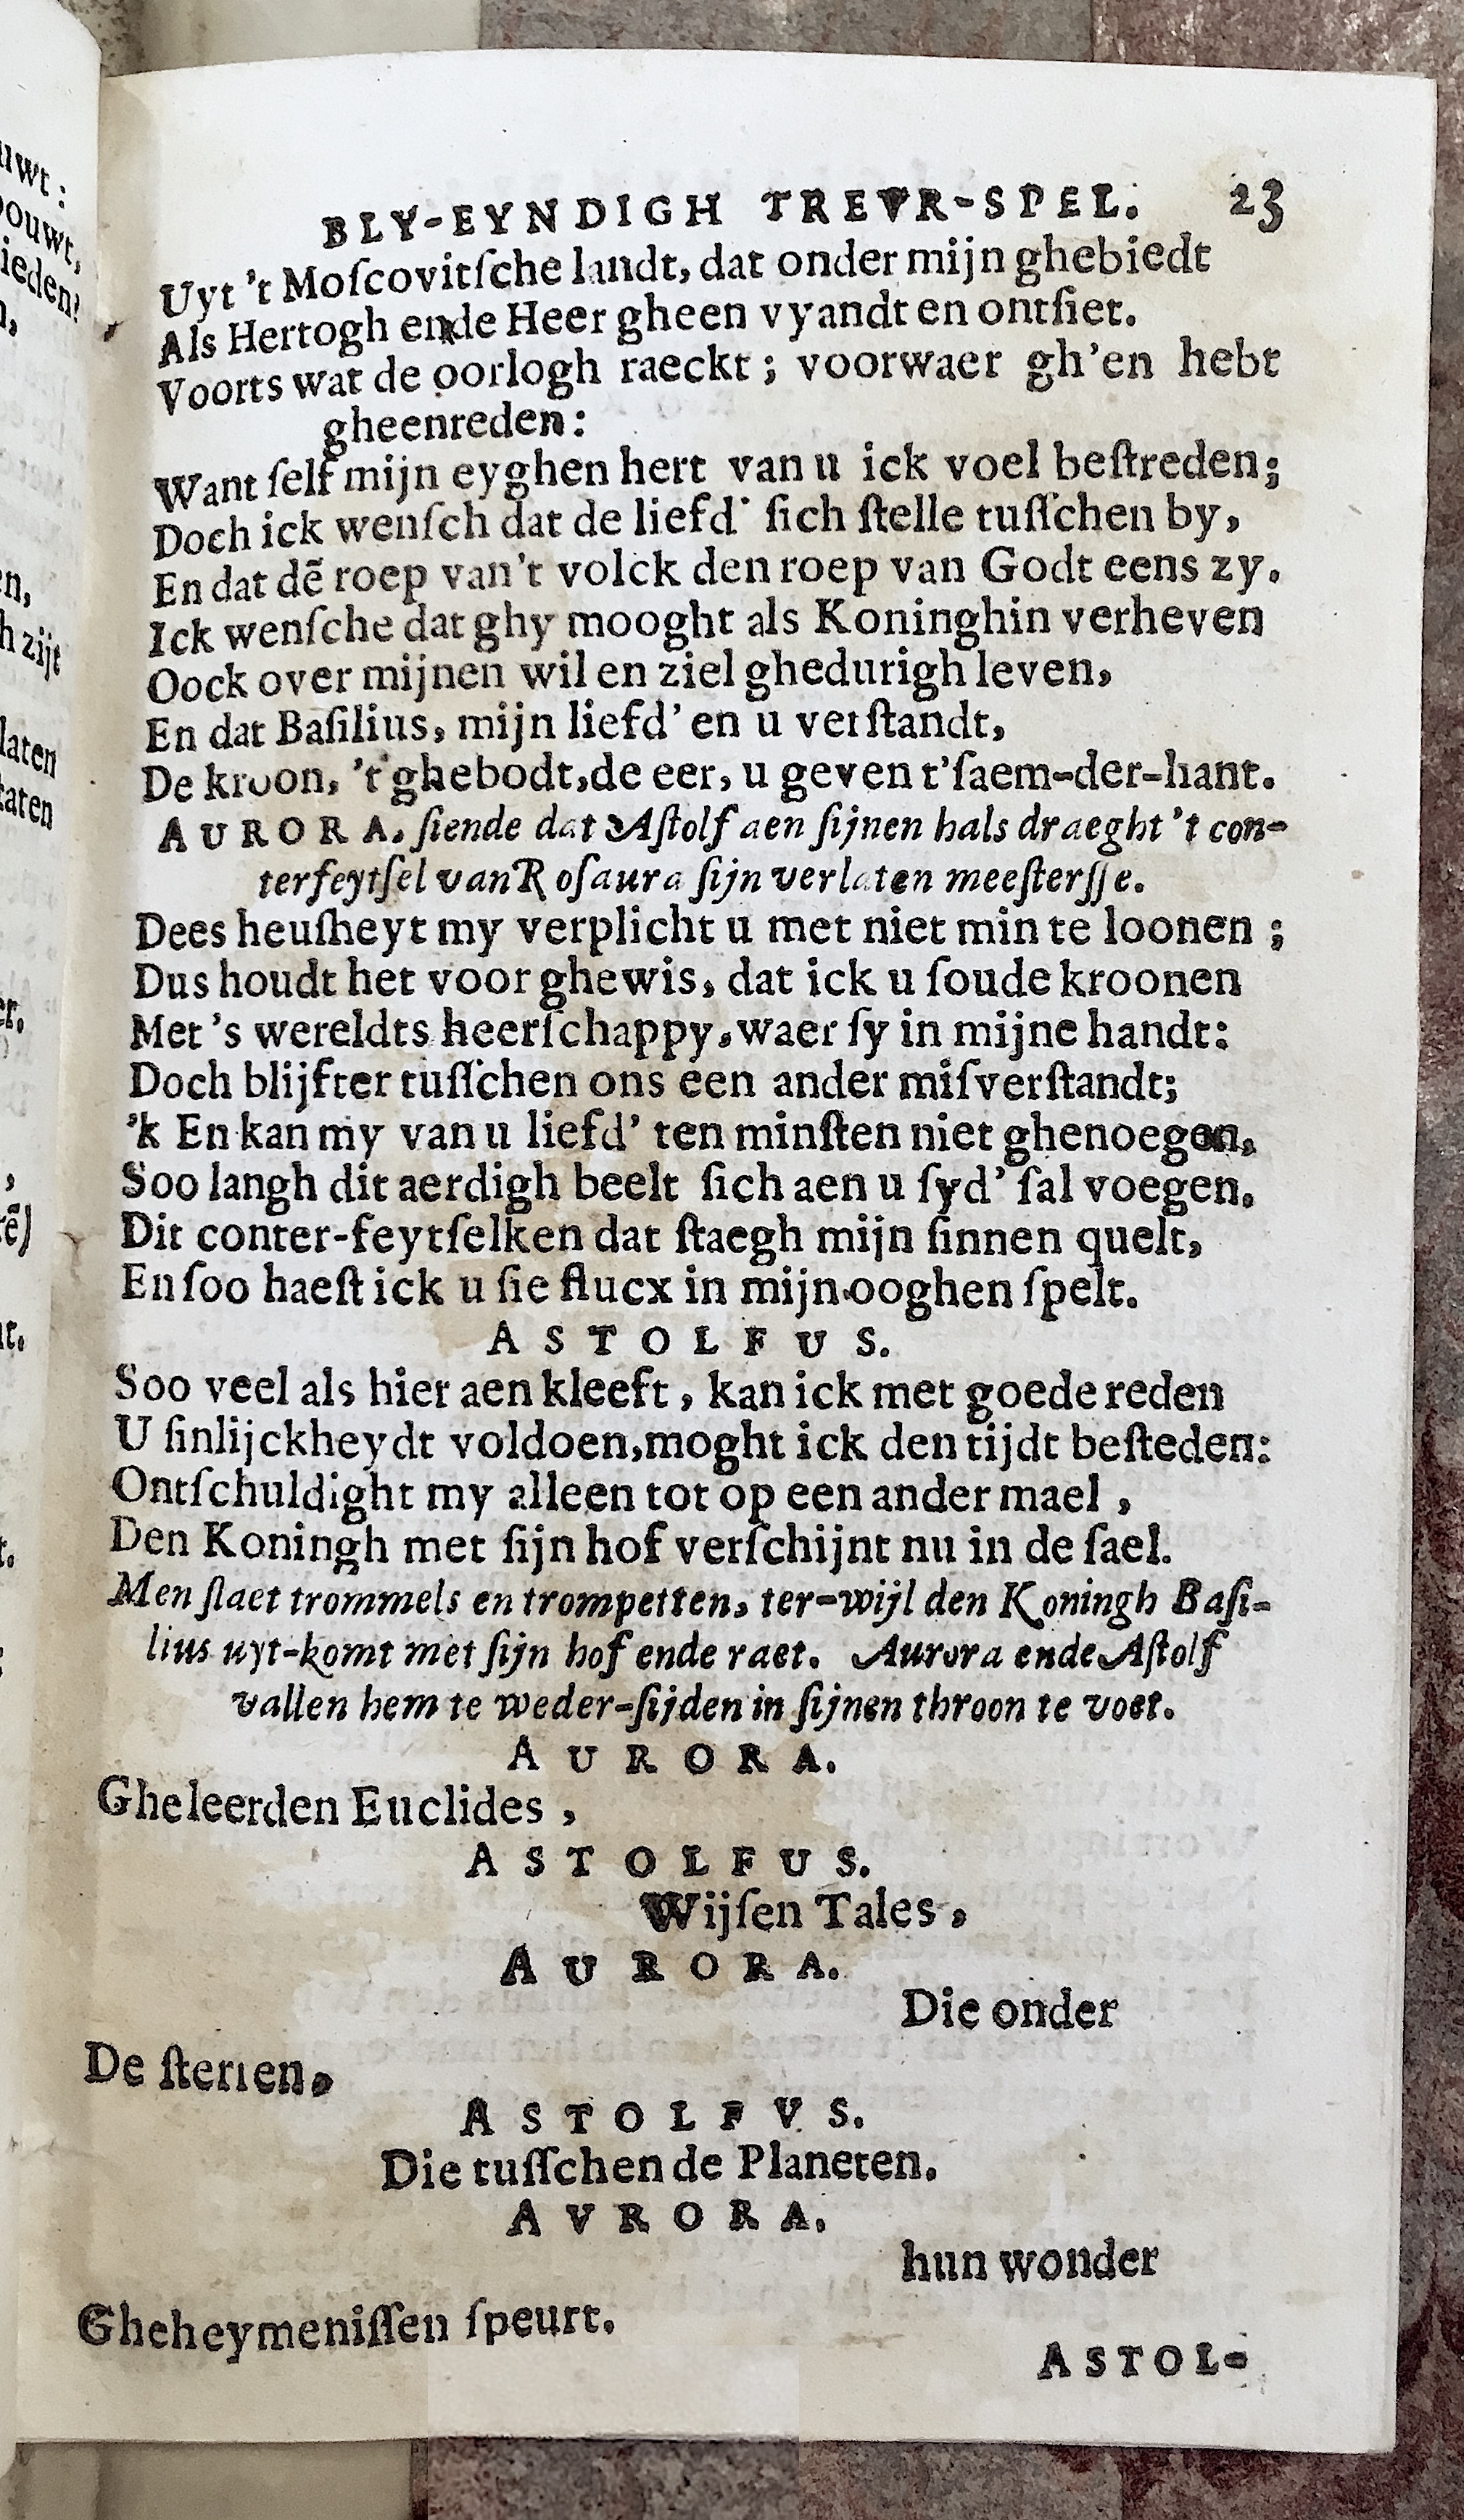 uwt:
ouwt,
ieden!
n,
en,
h zijt
laten
taten
er.
,
tẽ)
nt.
t.
;
BLY-EYNDIGH TREVR-SPEL. 23
Uyt 't Moſcovitſche landt, dat onder mijn ghebiedt
Als Hertogh ende Heer gheen vyandt en ontſiet.
Voorts wat de oorlogh raeckt; voorwaer gh'en hebt
gheenreden:
Want ſelf mijn eyghen hert van u ick voel beſtreden;
Doch ick wenſch dat de liefd' ſich ſtelle tuſſchen by,
En dat dẽ roep van't volck den roep van Godt eens zy.
Ick wenſche dat ghy mooght als Koninghin verheven
Oock over mijnen wil en ziel ghedurigh leven,
En dat Baſilius, mijn liefd' en u verſtandt,
De kroon, 't ghebodt, de eer, u geven t'ſaem-der-hant.
AURORA. ſiende dat Aſtolf aen ſijnen hals draeght 't con-
terfeytſel van Roſaura ſijn verlaten meeſterſſe.
Dees heuſheyt my verplicht u met niet min te loonen;
Dus houdt het voor ghewis, dat ick u ſoude kroonen
Met 's wereldts heerſchappy, waer ſy in mijne handt:
Doch blijfter tuſſchen ons een ander miſverſtandt;
'k En kan my van u liefd' ten minſten niet ghenoegen,
Soo langh dit aerdigh beelt ſich aen u ſyd' ſal voegen.
Dit conter-feytſelken dat ſtaegh mijn ſinnen quelt,
En ſoo haeſt ick u ſie flucx in mijn ooghen ſpelt.
ASTOLFUS.
Soo veel als hier aen kleeft, kan ick met goede reden
U ſinlijckheydt voldoen, moght ick den tijdt beſteden:
Ontſchuldight my alleen tot op een ander mael,
Den Koningh met ſijn hof verſchijnt nu in de ſael.
Men ſlaet trommels en trompetten, ter-wijl den Koningh Baſi-
lius uyt-komt met ſijn hof ende raet. Aurora ende Aſtolf
vallen hem te weder-ſijden in ſijnen throon te voet.
AURORA.
Gheleerden Euclides,
ASTOLFUS.
Wijſen Tales,
AURORA.
Die onder
De ſterren,
ASTOLFVS.
Die tuſſchen de Planeten.
AVRORA.
hun wonder
Gheheymeniſſen ſpeurt.
ASTOL-